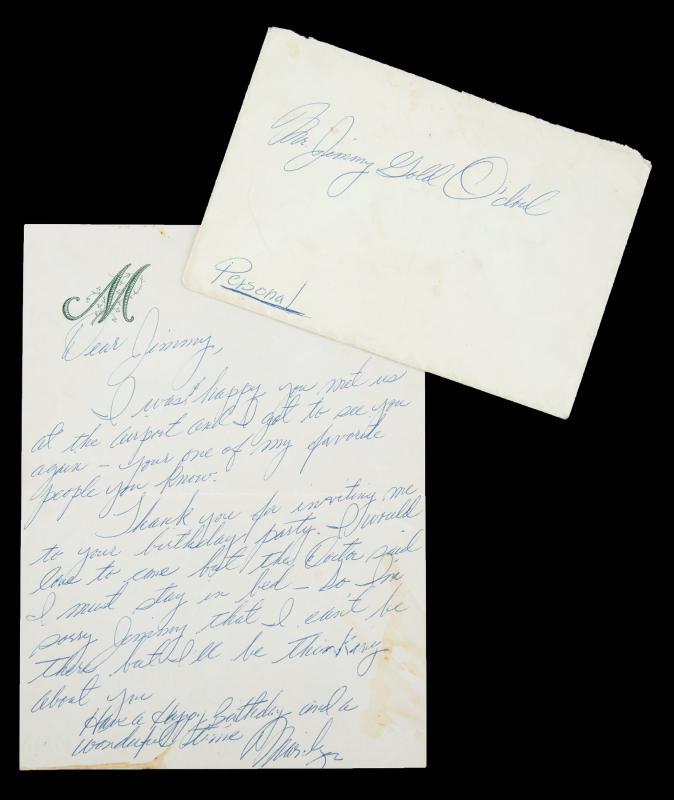 Mr. Jimmy Gold O'cloud
Personal
M
Dear Jimmy,
I was happy you met us
at the airport and I got to see you
again – your one of my favorite
people you know.
Thank you for inviting me
to your birthday party – I would
love to come but the Doctor said
I must stay in bed – so I'm
sorry Jimmy that I can't be
there but I'll be thinking
about you
Have a Happy Birthday and a
wonderful time
Marilyn